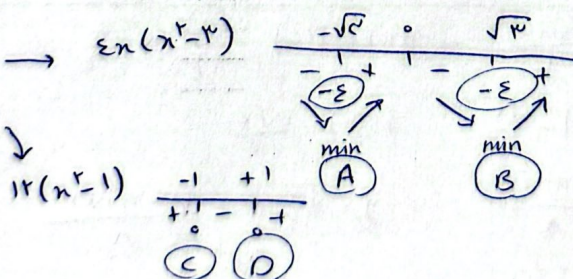 → ۴x(x^۲-۳) -√۳ ° √۳
- + - +
-۴ -۴
min min
A B
۱۲(x^۲-1) -1 +1
+ - +
° °
C D